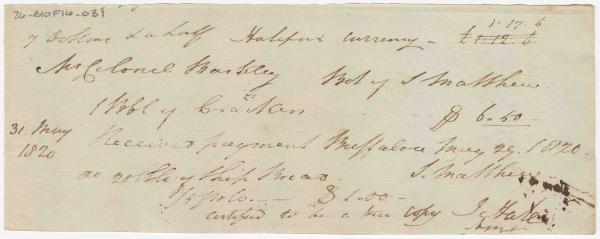 26-B10F16-031
1. 17. 6
7 Dollars & a half Halifax currency - £ 1. 12. 6
Mr Colonel Barkley Bot of S Matthew
1 Bbl of Crackers $ 6.50
31. May
1820
Received payment Buffaloe May 29. 1820.
20 lb of Ship Bread S. Matthew
$ 1.00
certified to be a true copy